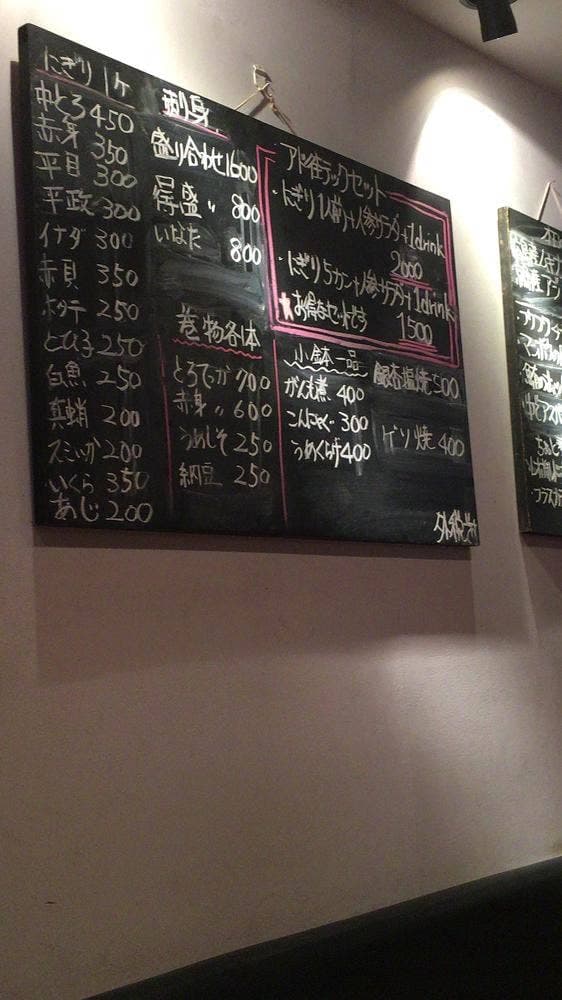 にぎり 1ケ
中とろ 450
赤身 350
平目 300
平政 300
イナダ 300
赤貝 350
ホタテ 250
とびっ子 250
白魚 250
真蛸 200
スミいか 200
いくら 350
あじ 200
刺身
盛り合わせ 1600
得盛 〃 800
いなだ 800
巻物各1本
とろてか 700
赤身 〃 600
うめしそ 250
納豆 250
セット
・にぎり1人前+人参サラダ+1drink
2000
・にぎり5カン+人参サラダ+1drink
★お得なセットです 1500
小鉢一品
がんも煮 400
こんにゃく 300
うめくらげ 400
銀杏塩焼 500
ゲソ焼 400